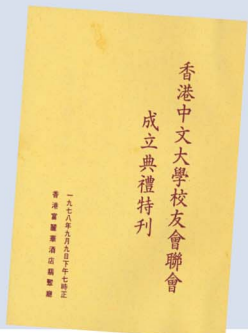 香港中文大學校友會聯會
成立典禮特刊
一九七八年九月九日下午七時正
香港富麗華酒店翡翠廳